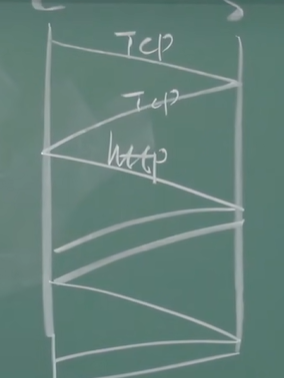 Tcp
Tcp
http